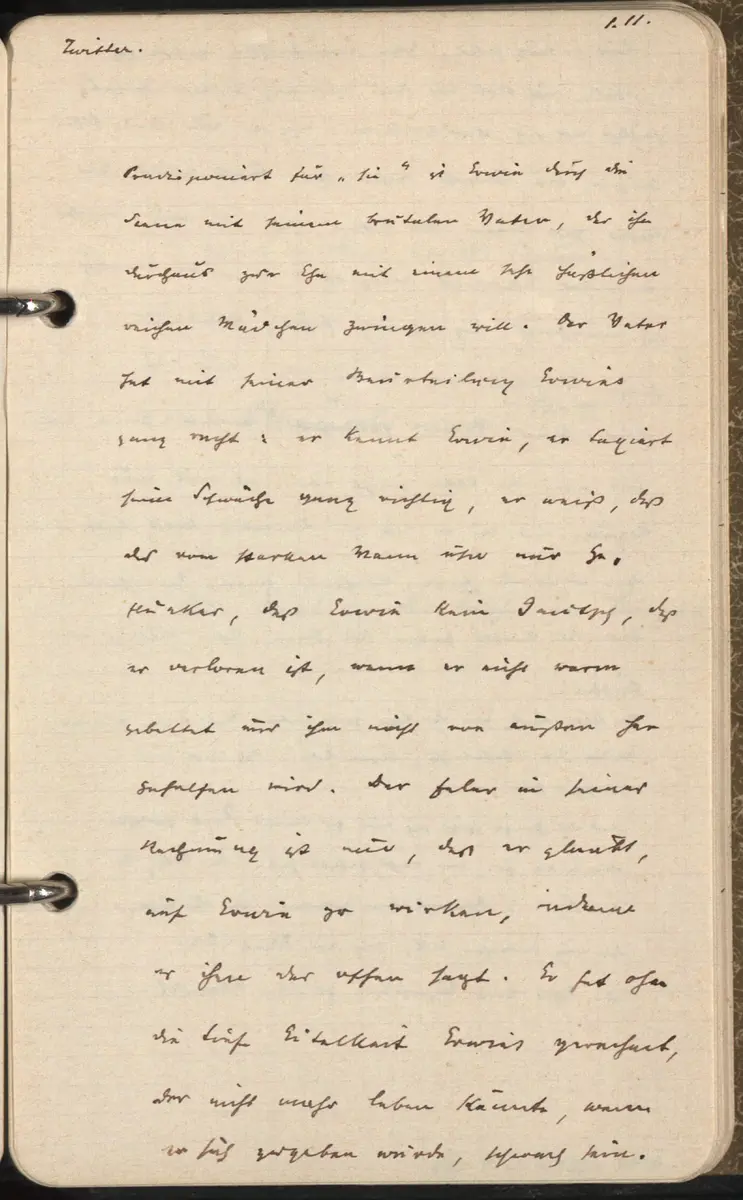 1.11.
Zwitter.
Praedisponiert für „sie“ ist Erwin durch die
Scene mit seinem brutalen Vater, der ihn
durchaus zur Ehe mit einem sehr häßlichen
reichen Mädchen zwingen will. Der Vater
hat mit seiner Beurteilung Erwins
ganz recht: er kennt Erwin, er taxiert
seine Schwäche ganz richtig, er weiß, daß
das vom starken Mann usw nur Ge-
flunker, daß Erwin kein        , daß
er verloren ist, wenn er nicht warm
gebettet und ihm nicht von außen her
geholfen wird. Der Feler in seiner
Rechnung ist nur, daß er glaubt,
auf Erwin zu wirken, indem
er ihm das offen sagt. Er hat ohne
die tiefe Eitelkeit Erwins gerechnet,
der nicht mehr leben könnte, wenn
er sich zugeben würde, schwach sein.